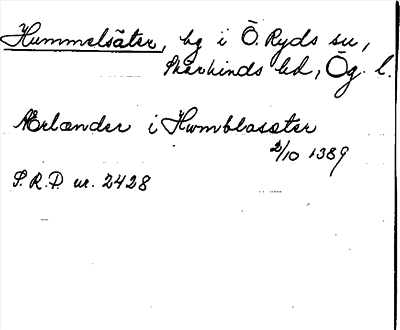 Hummelsäter, by i Ö. Ryds sn,
Skärkinds hd, Ög. l.
Ærlænder i Humblasæter
2/10 1389
S.R.P. nr. 2428